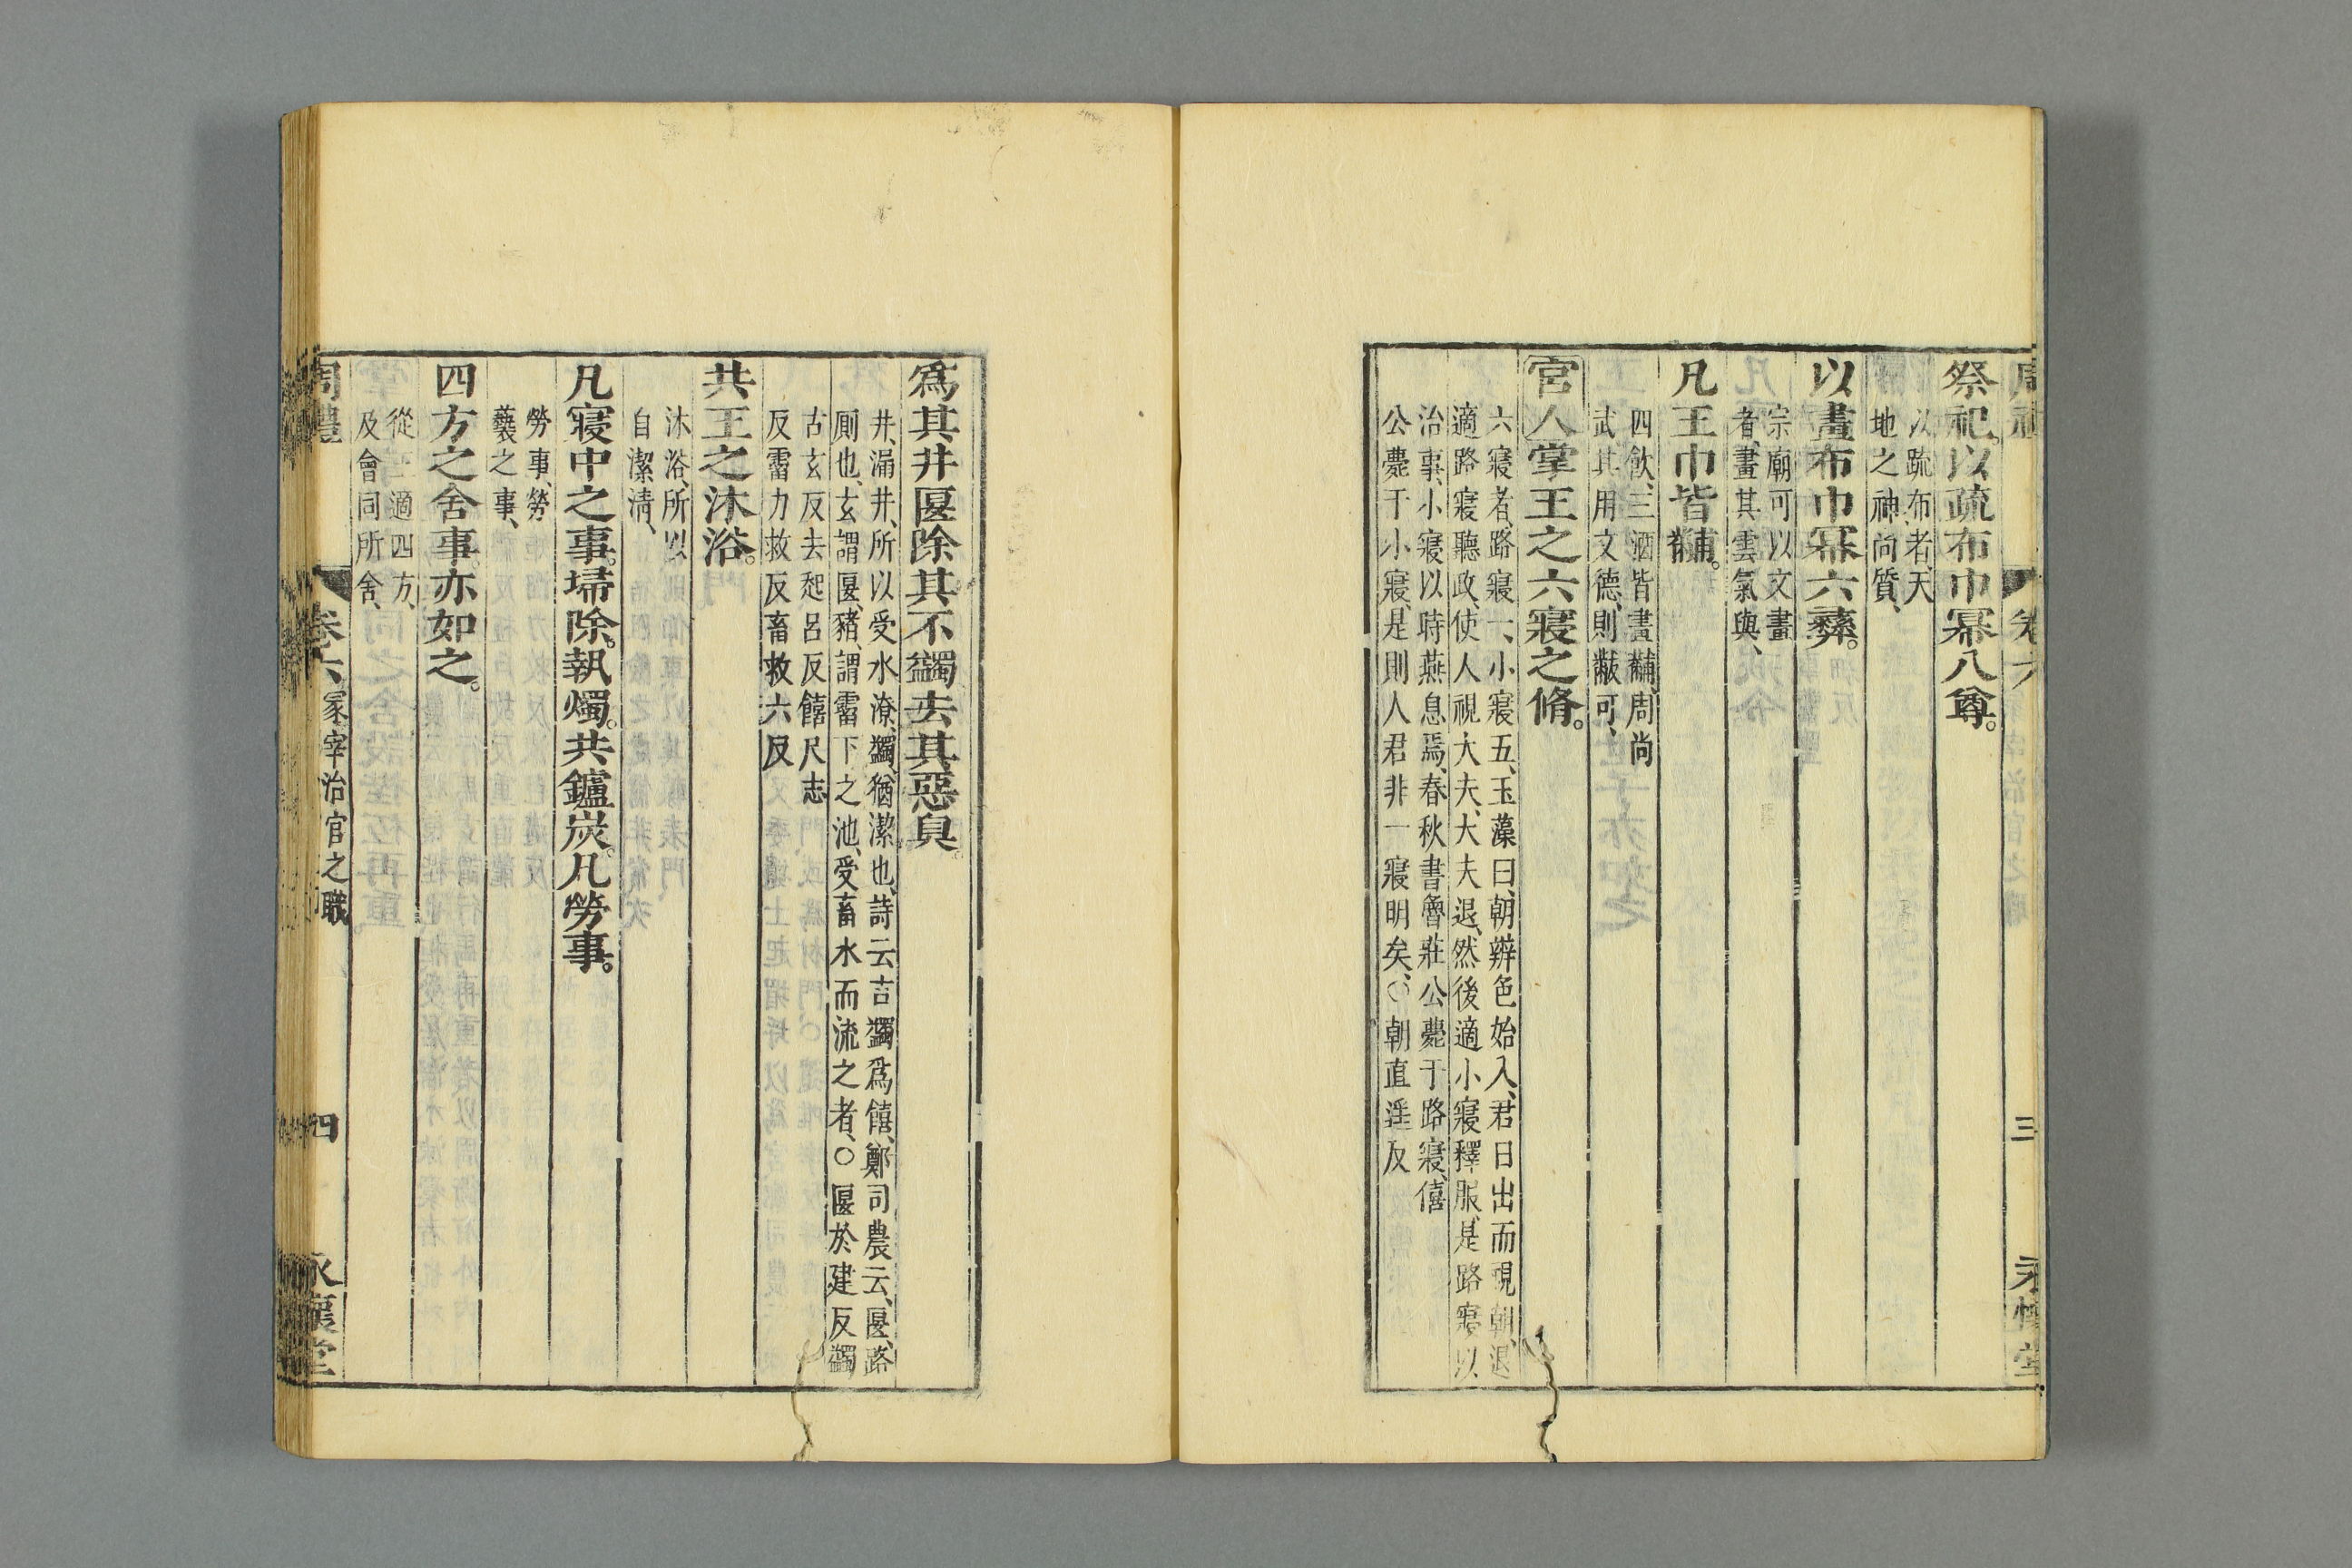 祭祀。以疏布巾冪八尊。
以疏布者、天
地之神尚質、
以畫布巾冪六彝。
宗廟可以文畫
者、畫其雲氣與、
凡王巾皆黼。
四飲、三酒皆畫黼、周尚
武其用文德、則黻可、
宮人掌王之六寢之脩。
六寢者、路寢一、小寢五、玉藻曰、朝辨色始入、君日出而視朝、退
適路寢聽政、使人視大夫、大夫退、然後適小寢釋服、是路寢以
治事、小寢以時燕息焉、春秋書魯莊公薨于路寢、僖
公薨于小寢、是則人君非一寢明矣、○朝直遥反
爲其井匽除其不蠲去其惡臭。
井、漏井、所以受水潦、蠲、猶潔也、詩云吉蠲爲饎、鄭司農云、匽、路
厠也、玄謂匽、豬、謂霤下之池、受畜水而流之者、○匽於建反蠲
古玄反去起呂反饎尺志
反霤力救反畜敕六反
共王之沐浴。
沐浴、所以
自潔清、
凡寢中之事。埽除。執燭。共鑪炭。凡勞事。
勞事、勞
褻之事、
四方之舍事。亦如之。
從王適四方、
及會同所舍、
周禮 卷六 冢宰治官之職 四 永懷堂